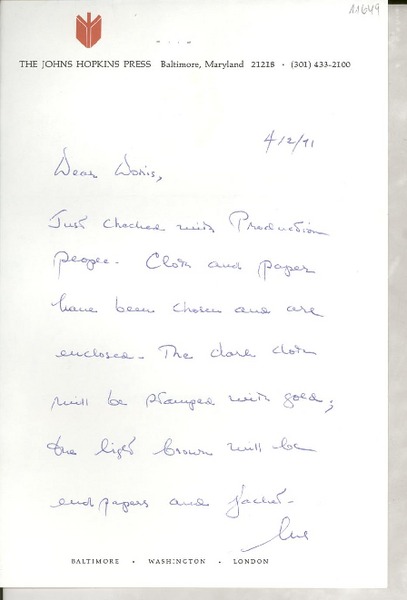 11649
THE JOHNS HOPKINS PRESS Baltimore, Maryland 21218 · (301) 433-2100
4/2/71
Dear Doris,
Just checked with Production
people. Cloth and paper
have been chosen and are
enclosed. The dark cloth
will be stamped with gold;
the light brown will be
endpapers and jacket.
BALTIMORE · WASHINGTON · LONDON